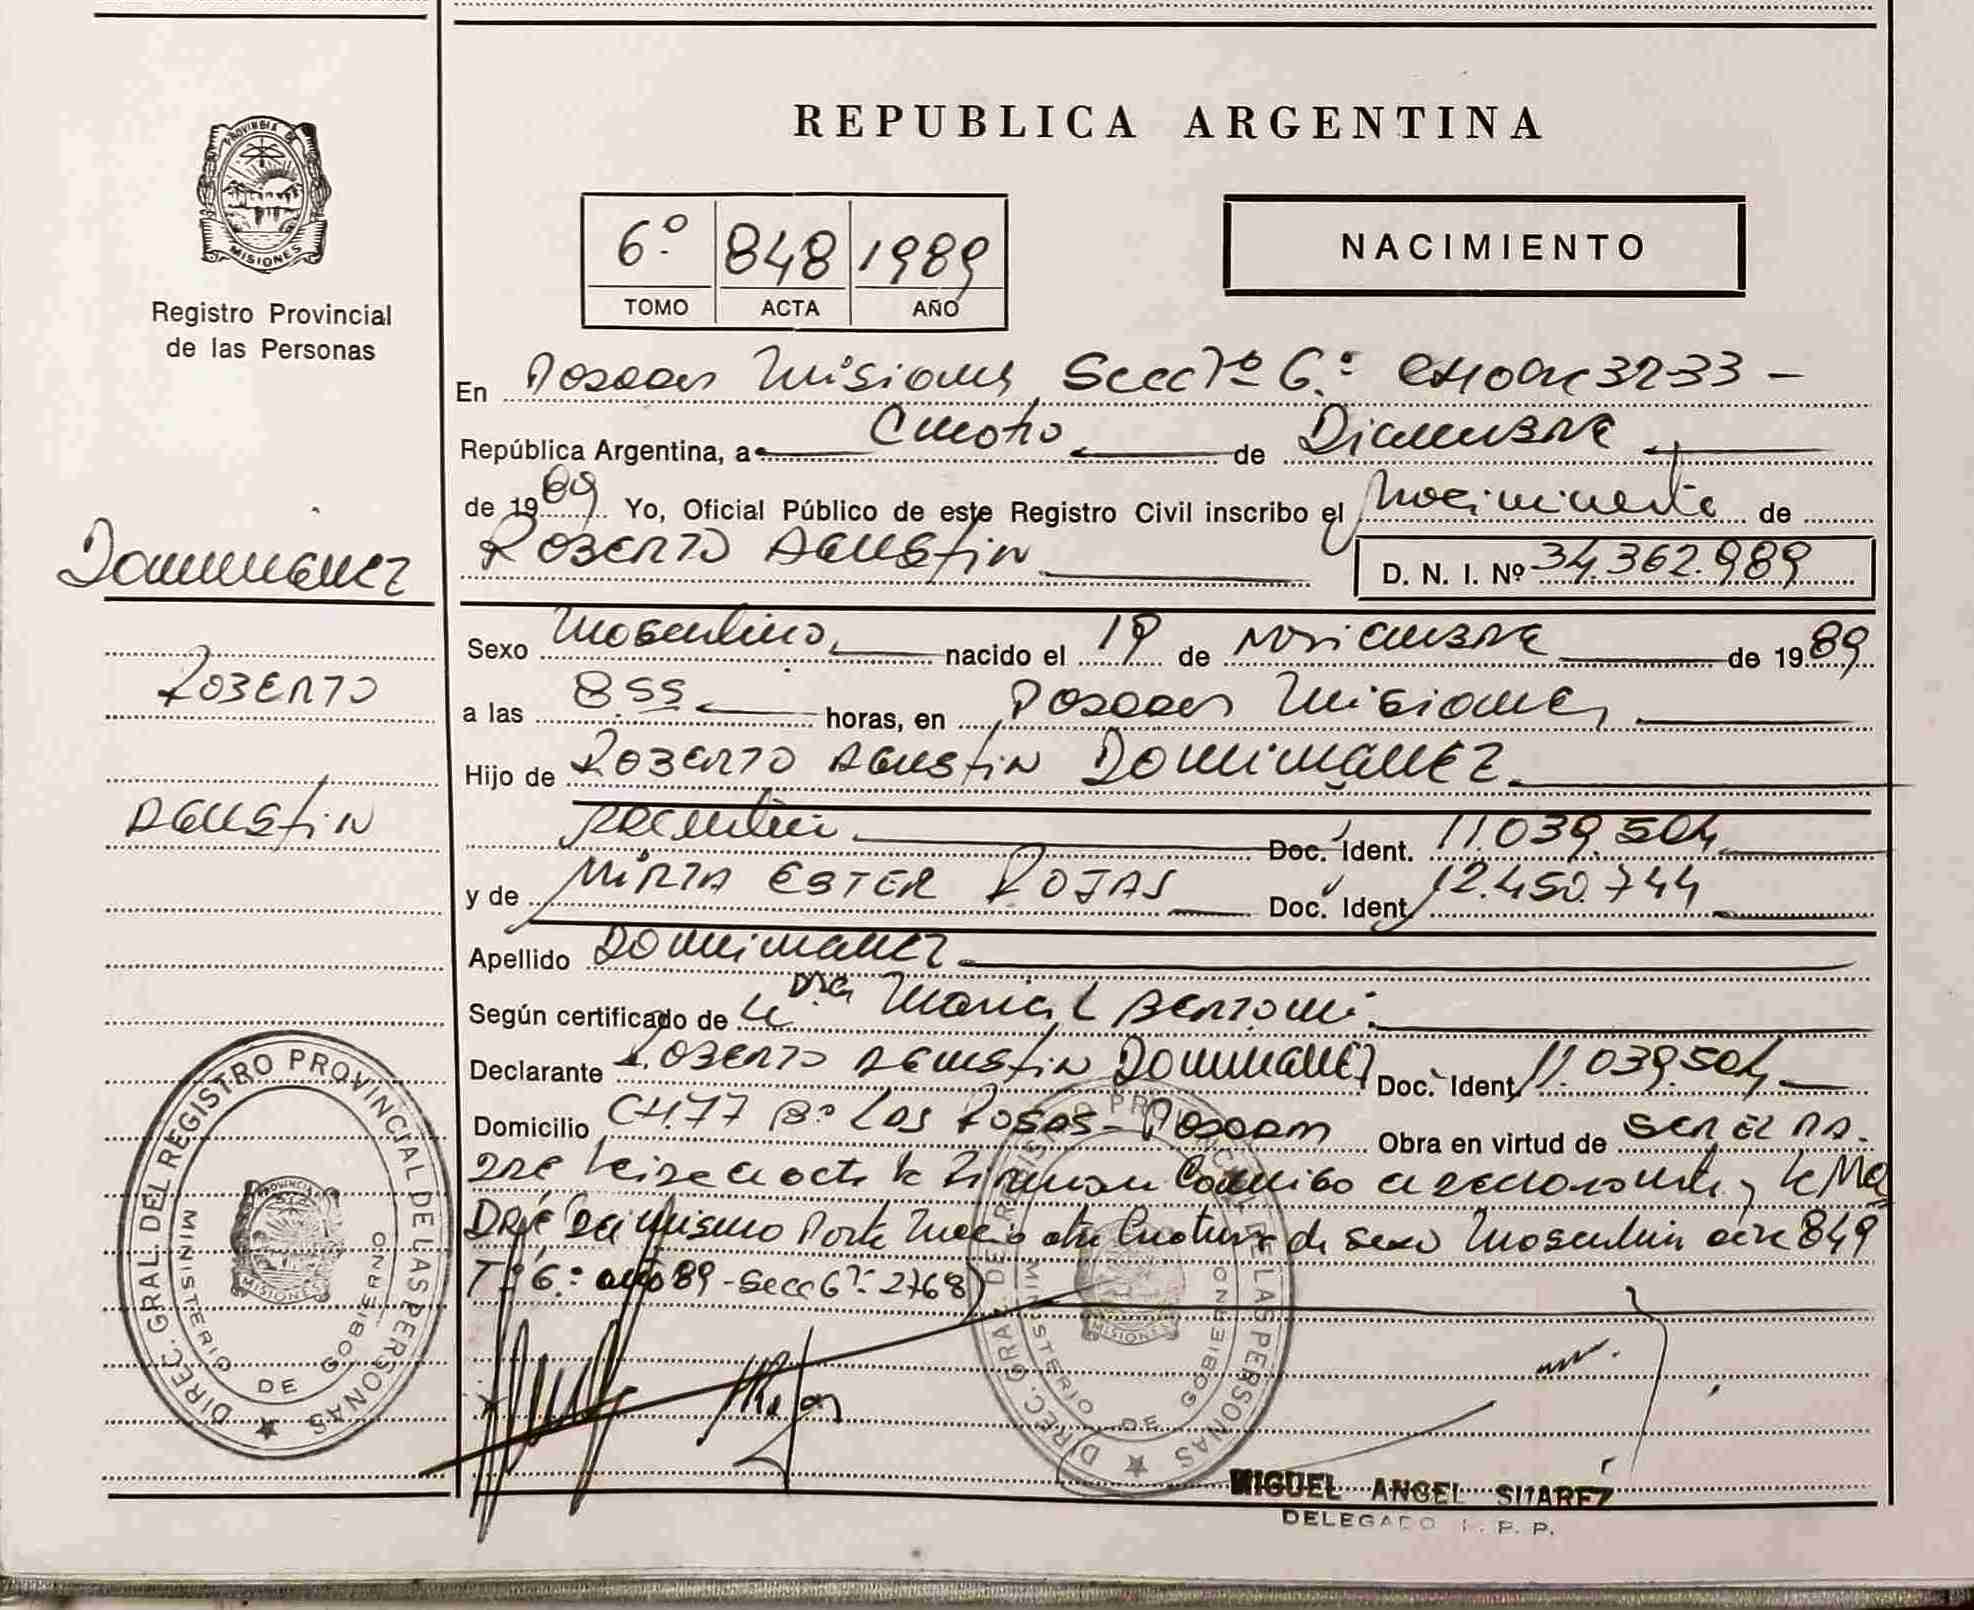 REPUBLICA ARGENTINA
PROVINCIA DE
MISIONES
Registro Provincial
de las Personas
6º 848 1989
TOMO ACTA AÑO
NACIMIENTO
En Posadas Misiones Secc 6º
República Argentina, a Cuatro de Diciembre
de 1989 Yo, Oficial Público de este Registro Civil inscribo el Nacimiento de
ROBERTO AGUSTIN
D. N. I. Nº 34.362.989
Dominguez
ROBERTO
AGUSTIN
Sexo Masculino nacido el de Noviembre de 1989
a las 8.55 horas, en Posadas Misiones
Hijo de ROBERTO AGUSTIN DOMINGUEZ
Argentino Doc. Ident. 11.039.504
y de MIRTA ESTER ROJAS Doc. Ident. 12.450.744
Apellido DOMINGUEZ
Según certificado de la Dra Maria L Bertoni
Declarante ROBERTO AGUSTIN DOMINGUEZ Doc. Ident. 11.039.504
Domicilio CH.77 Bº LAS ROSAS - Posadas Obra en virtud de SER EL PA-
DRE Leida el acta la Firman Conmigo el declarante y la MA
DRE Del mismo Parto Nacio otra Criatura de sexo Masculino acta 849
Tº 6º año 89 - Secc 6º 2768)
DIREC. GRAL DEL REGISTRO PROVINCIAL DE LAS PERSONAS
MINISTERIO DE GOBIERNO
MISIONES
MIGUEL ANGEL SUAREZ
DELEGADO R. P. P.